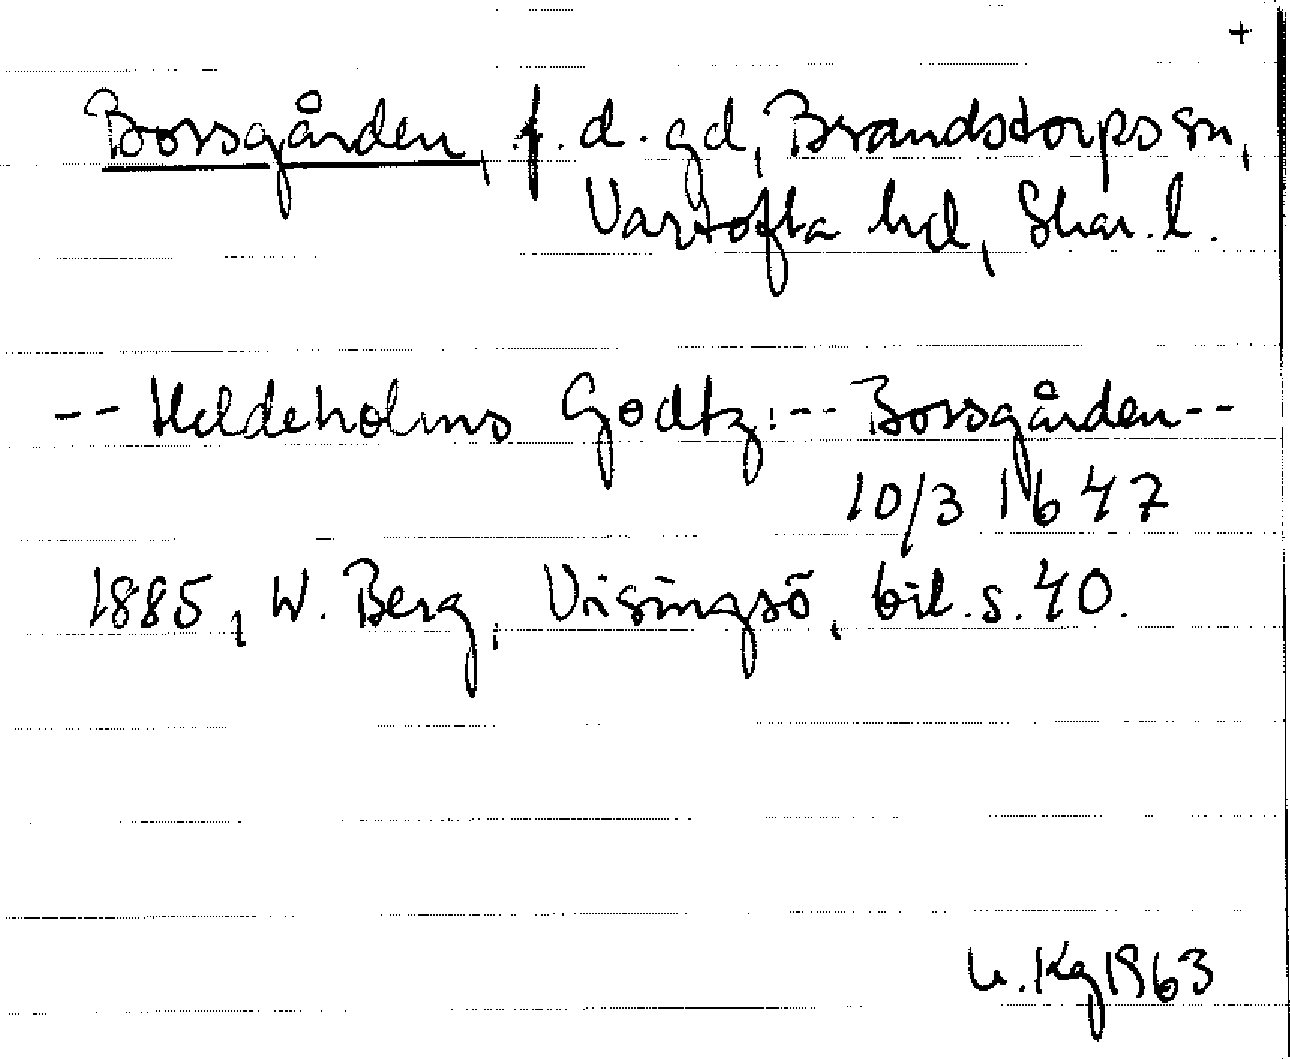 +
Borsgården, f.d. gd, Brandstorps sn,
Vartofta hd, Skar. l.
-- Heldeholms Godtz: -- Borsgården --
10/3 1647
1885, W. Berg, Visingsö, bil. s. 40.
u. Kg 1963